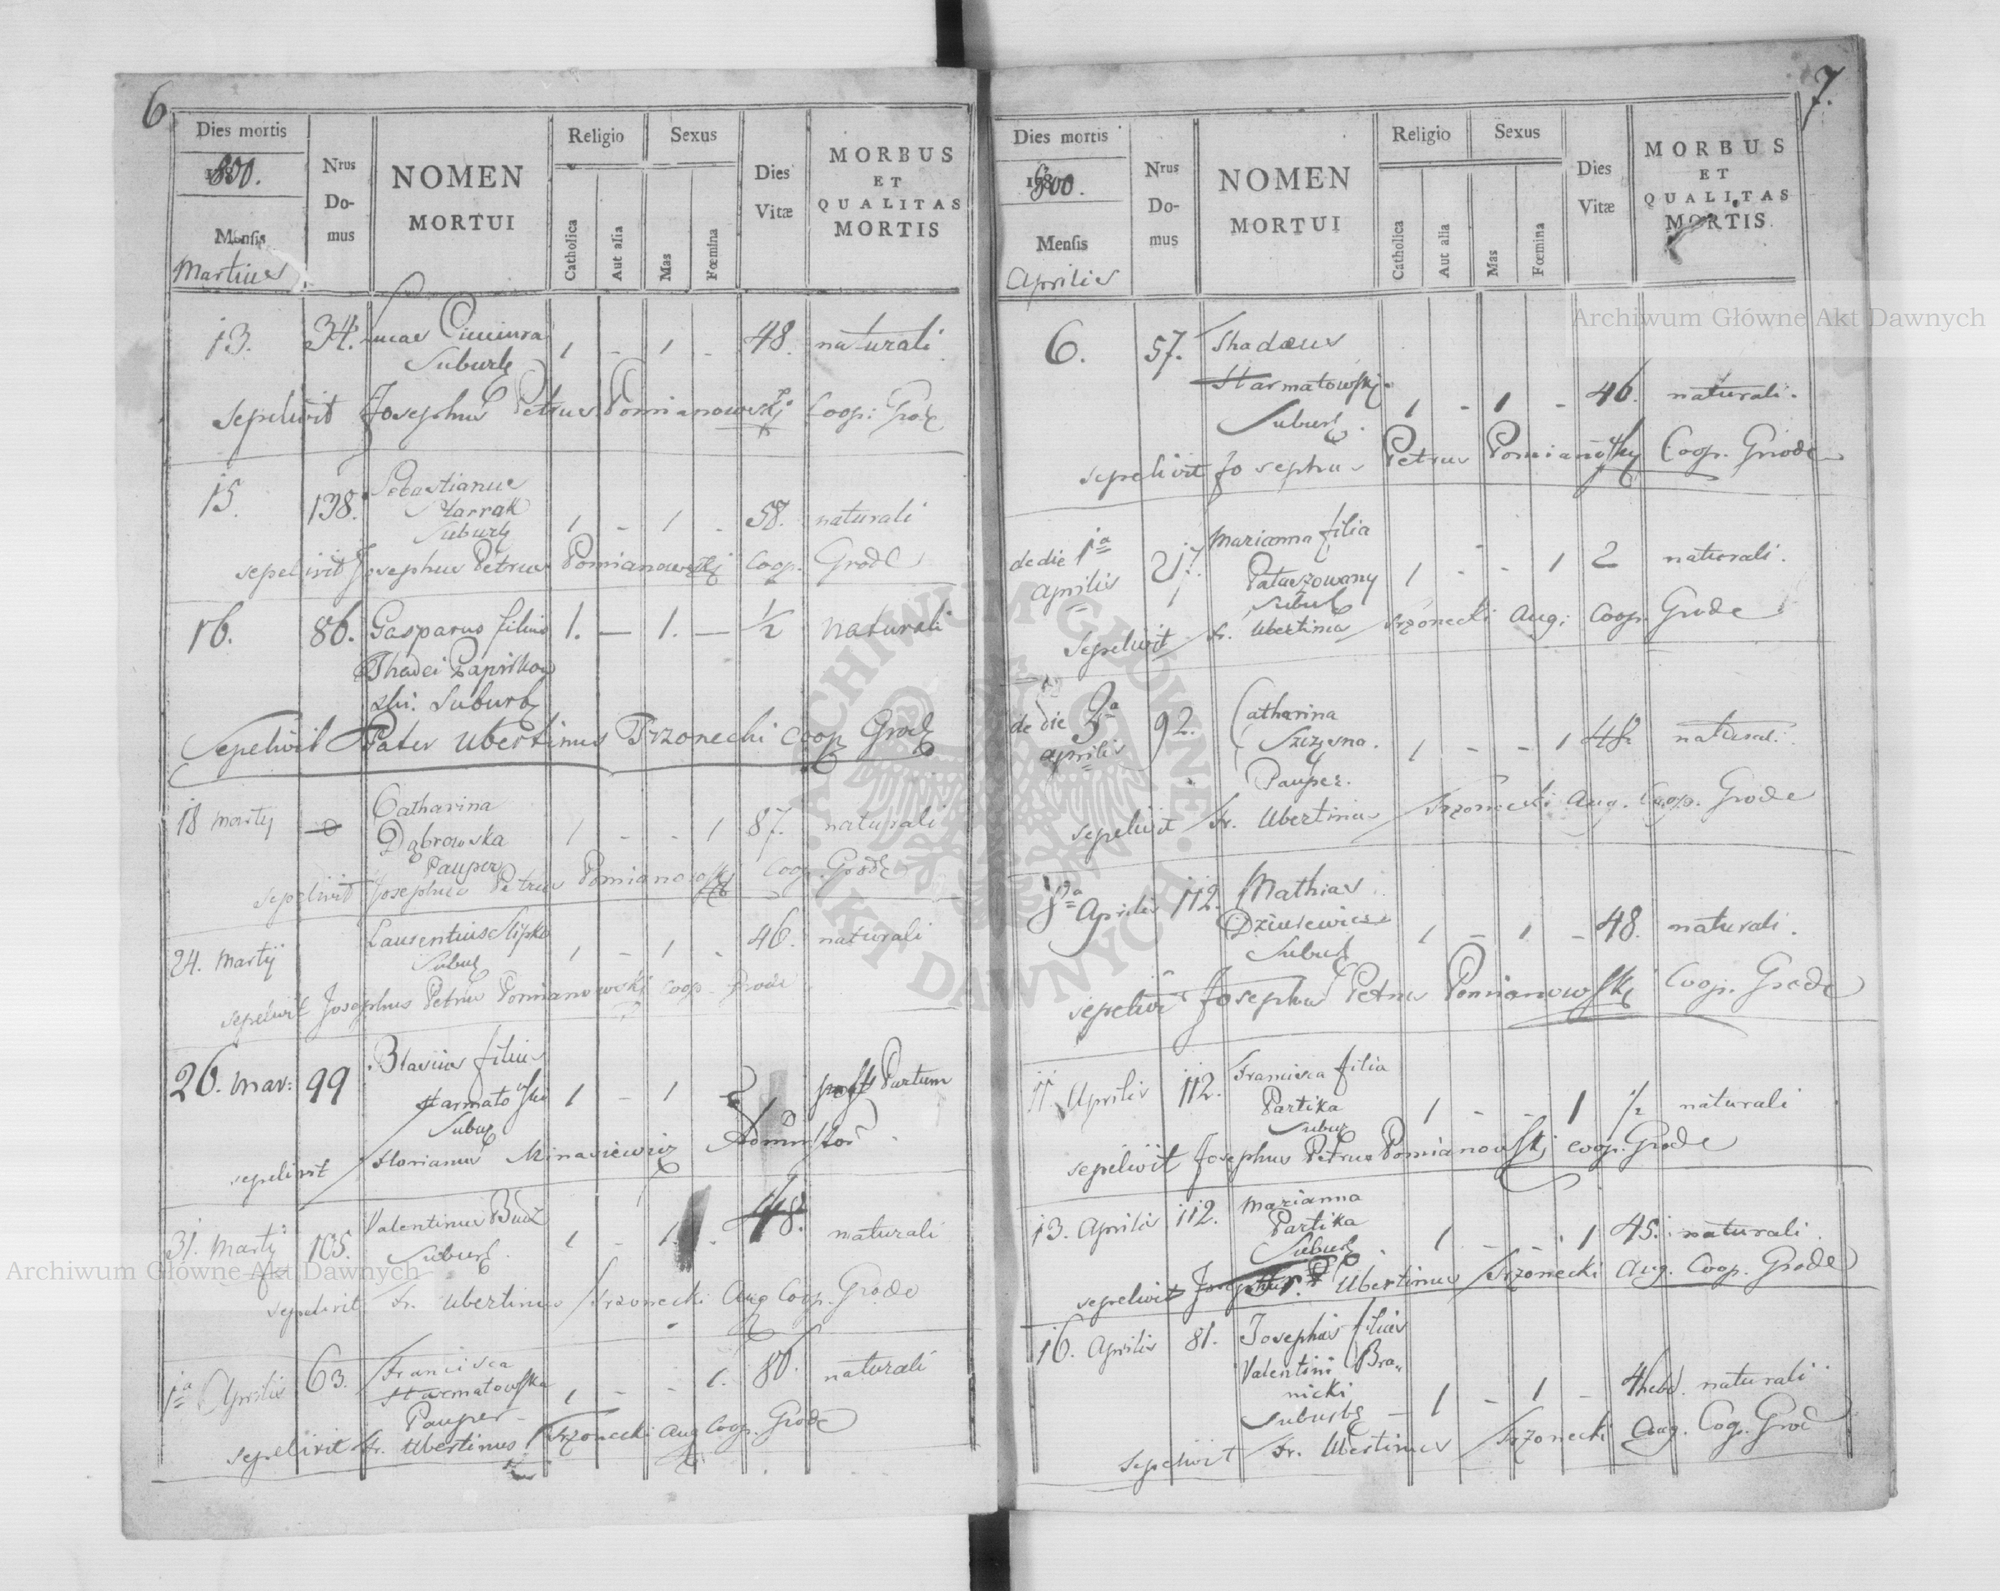 6
Dies mortis
1800.
Mensis
Martius
Nrus
Do-
mus
NOMEN
MORTUI
Religio
Catholica
Aut alia
Sexus
Mas
Fœmina
Dies
Vitæ
MORBUS
ET
QUALITAS
MORTIS
13. 34. Lucas
Suburb 1 - 1 - 48. naturali
sepelivit Josephus Petrus Pomianowski Coop: Grod
15. 138. Sebastianus
Suburb 1 - 1 - 58. naturali
sepelivit Josephus Petrus Pomianowski Coop. Grode
16. 86. Gasparus filius 1. - 1. - 1/2 naturali
Thadei
Suburb
Sepelivit Pater Ubertinus Trzonecki Coop Grod
18 Martij Catharina
Dąbrowska 1 - - 1 87. naturali
Pauper
sepelivit Josephus Petrus Pomianowski Coop. Grode
24. Martij Laurentius Slipko
Subur 1 - 1 - 46. naturali
sepelivit Josephus Petrus Pomianowski Coop. Grode
26. Mar: 99 Blasius filius
1 - 1 post Partum
Subur
sepelivit Florianus
31. Martij 105. Valentinus
Suburb. 1 - 1 . 48. naturali
sepelivit Fr. Ubertinus Trzonecki Aug Coop. Grode
1a Aprilis 63. Francisca
Starmatowska 1 - - 1. 80. naturali
Pauper
sepelivit Fr. Ubertinus Trzonecki Aug Coop. Grode
7.
Dies mortis
1800.
Mensis
Aprilis
Nrus
Do-
mus
NOMEN
MORTUI
Religio
Catholica
Aut alia
Sexus
Mas
Fœmina
Dies
Vitæ
MORBUS
ET
QUALITAS
MORTIS.
6. 57. Thadæus
Starmatowski.
Suburb. 1 - 1 - 46. naturali.
sepelivit Josephus Petrus Pomianowski Coop. Grode
de die 1a
Aprilis 27. Marianna filia
1 - - 1 2 naturali.
Suburb
Sepelivit Fr. Ubertinus Trzonecki Aug: Coop. Grode
de die 3a
aprilis 92. Catharina
1 - - 1 48 natural.
Pauper.
sepelivit Fr. Ubertinus Trzonecki Aug. Coop. Grode
8a Aprilis 112. Mathias
Suburb 1 - 1 - 48. naturali.
sepelivit Josephus Petrus Pomianowski Coop. Grode
11. Aprilis 112. Francisca filia
Partika 1 - - 1 1/2 naturali
Subur
sepelivit Josephus Petrus Pomianowski coop. Grode
13. Aprilis 112. Marianna
Partika
Suburb 1 - - 1 45. naturali.
sepelivit Ubertinus Trzonecki Aug. Coop. Grode
16. Aprilis 81. Josephus filius
Valentini Bra-
nicki
Suburb 1 - 1 - 4 hebd. naturali
Sepelivit Fr. Ubertinus Trzonecki Aug. Coop. Grod
Archiwum Główne Akt Dawnych
Archiwum Główne Akt Dawnych
ARCHIWUM GŁÓWNE AKT DAWNYCH